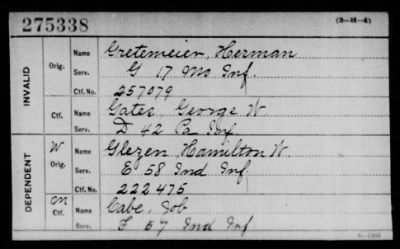 275338
(3-H-4)
INVALID
Orig. Name Gretemeier, Herman
Serv. G 17 Mo Inf.
Ctf. No. 257079
Ctf. Name Gates, George W
Serv. D 42 Pa Inf
DEPENDENT
W Orig. Name Glezen, Hamilton W.
Serv. E 58 Ind Inf
Ctf. No. 222475
Ctf. Name Cabe, Job
Serv. F 57 Ind Inf